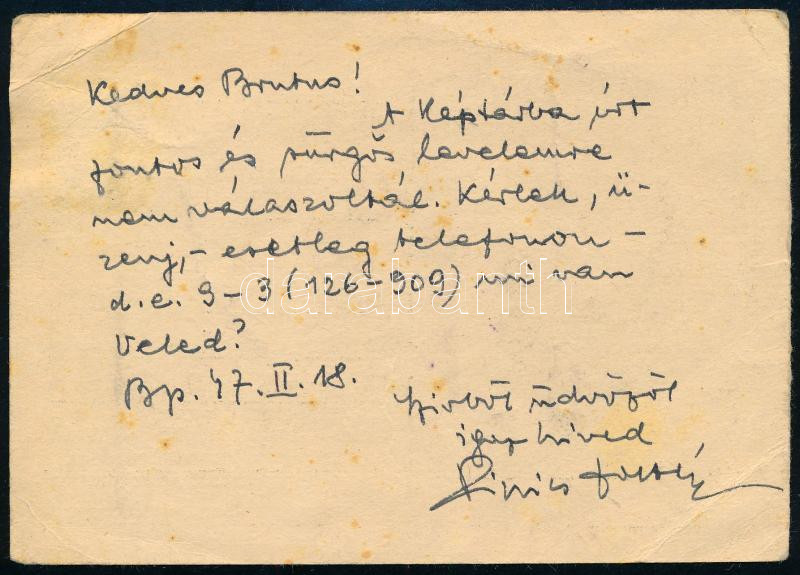 Kedves Brutus!
A Képtárba írt
fontos és sürgős levelemre
nem válaszoltál. Kérlek, ü-
zenj, – esetleg telefonon –
d.e. 9–3 (126–909) mi van
Veled?
Bp. 47. II. 18.
Szívből üdvözöl
igaz híved
darabanth